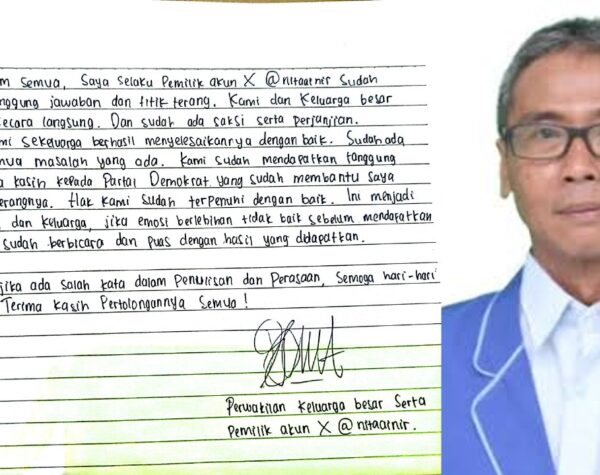 m semua, Saya selaku Pemilik akun X @nitaarnir Sudah
nggung jawaban dan titik terang. Kami dan Keluarga besar
ecara langsung. Dan sudah ada saksi serta perjanjian.
mi sekeluarga berhasil menyelesaikannya dengan baik. Sudah ada
mua masalah yang ada. Kami sudah mendapatkan tanggung
a kasih kepada Partai Demokrat yang sudah membantu saya
erangnya. Hak Kami sudah terpenuhi dengan baik. Ini menjadi
dan keluarga, jika emosi berlebihan tidak baik sebelum mendapatkan
sudah berbicara dan puas dengan hasil yang didapatkan.
jika ada salah kata dalam Penulisan dan Perasaan, Semoga hari-hari
Terima kasih Pertolongannya Semua!
Perwakilan Keluarga besar Serta
Pemilik akun X @nitaarnir.